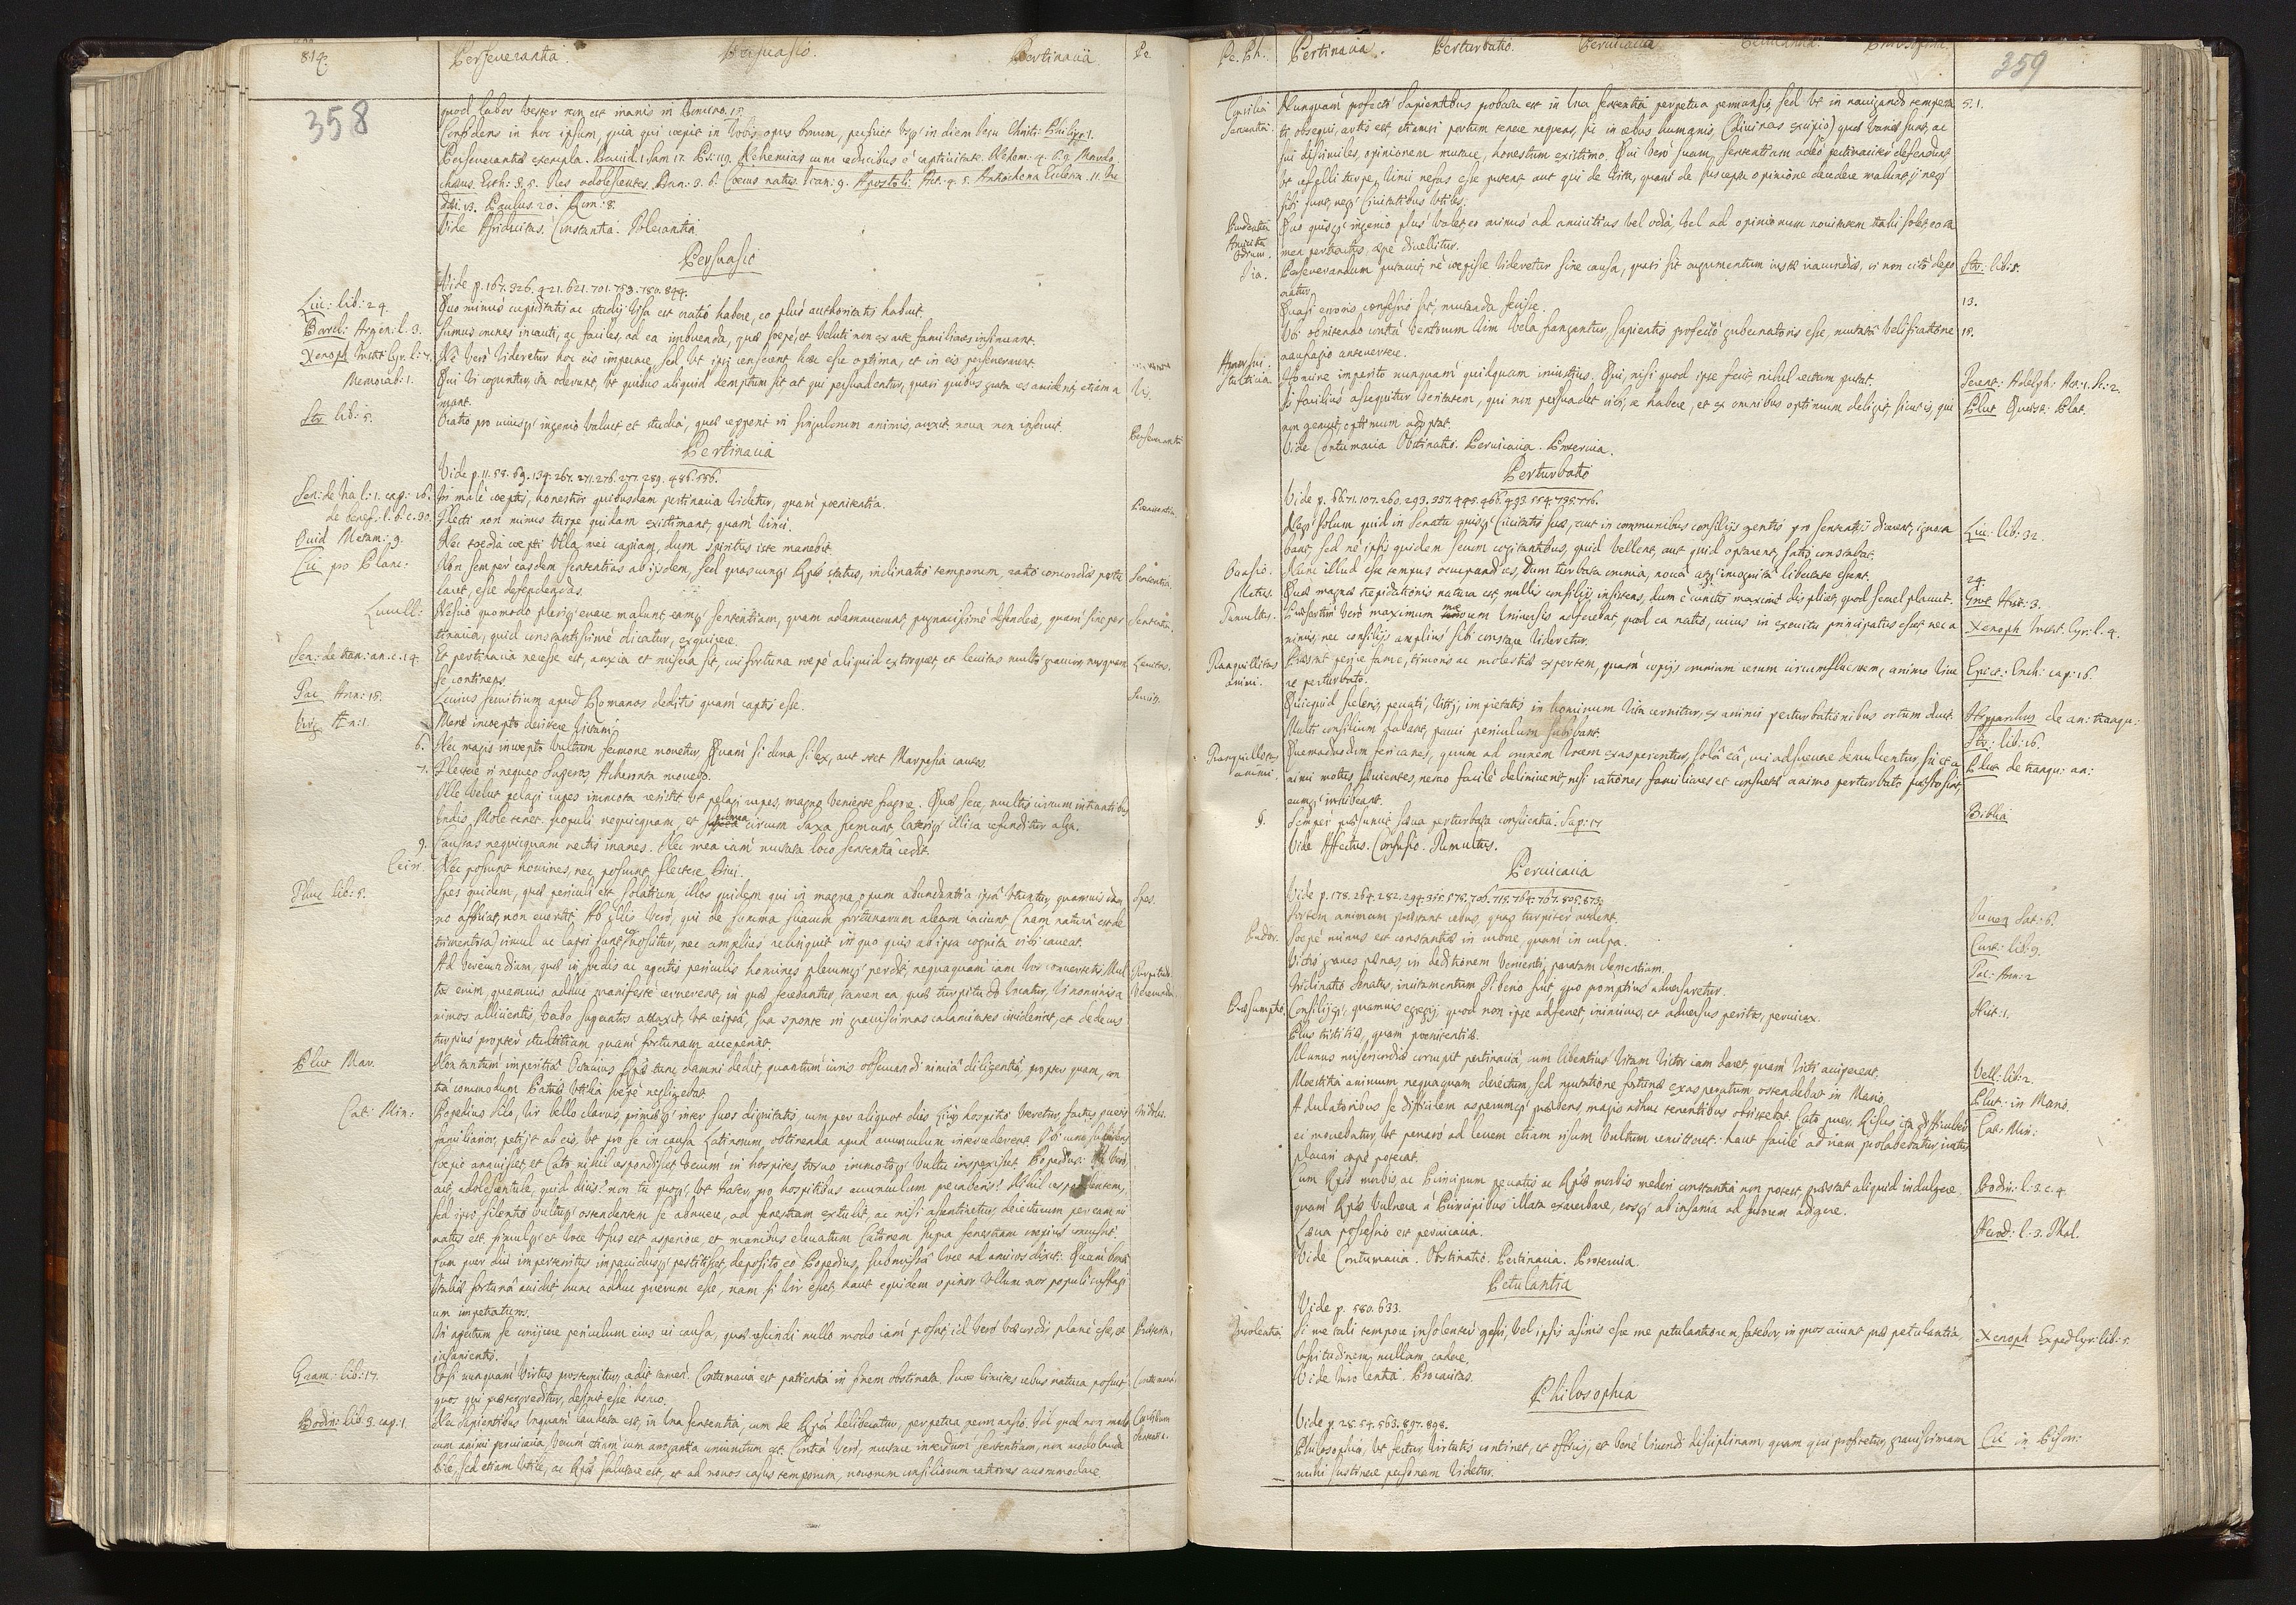 814.
Perseverantia. Persuasio. Pertinacia Pe.
358
quod labor vester non est inanis in Domino. 15
Confidens in hoc ipsum, quia qui coepit in vobis opus bonum, perficiet usq. in diem Iesu Christi. Philipp. 1.
Perseverantiae exempla. David. 1 Sam 17. Ps: 119. Nehemias cum reducibus e captivitate. Nehem: 4. 6. 9. Mardo
chaeus. Esth: 3. 5. Tres adolescentes. Dan: 3. 6. Coecus natus. Ioan: 9. Apostoli. Act: 4. 5. Antiochena Ecclesia. 11.
13. Paulus 20. Rom: 8.
Vide Assiduitas. Constantia. Tolerantia
Persuasio
Vide p. 167. 326. 421. 621. 701. 753. 780. 844.
Liu: lib: 24. Quo minus cupiditatis ac studij visa est oratio habere, eo plus authoritatis habuit.
Barcl: Argen: l. 3. Sumus omnes incauti, ac faciles ad ea imbuenda, quae saepe, et veluti non ex arte familiares insinuant.
Xenoph Instit Cyr. l: 7. Ne vero videretur hoc eis imperare, sed ut ipsi censerent haec esse optima, et in eis perseverarent.
Memorab: 1. Qui vi coguntur, ita oderunt, ut quibus aliquid demptum sit, at qui persuadentur, quasi quibus grata res accident, etiam a Vis.
mant.
Str lib: 5. Oratio pro cuiusq. ingenio valuit et studia, quae repperit in singulorum animis, auxit, nova non infudit.
Pertinacia
Vide p. 11. 58. 69. 134. 267. 271. 276. 277. 289. 486. 556.
Sen: de Ira l: 1. cap: 16. In male coeptis, honestior quibusdam pertinacia videtur, quam poenitentia. Poenitentia
de benef: l. 6. c. 30. Flecti non minus turpe quidam existimant, quam vinci.
Ouid Metam: 9. Nec taedia coepti ulla mei capiam, dum spiritus iste manebit.
Cic pro Planc: Non semper easdem sententias ab ijsdem, sed quascunq. Rpb status, inclinatio temporum, ratio concordiae postu Sententia.
laret, esse defendendas.
Lucull: Nescio quomodo pleriq. errare malunt, eamq. sententiam, quam adamaverunt, pugnacissime defendere, quam sine per Sententia.
tinacia, quid constantissime dicatur, exquirere.
Sen: de tran: an. c. 14. Et pertinacia necesse est, anxia et misera sit, cui fortuna saepe aliquid extorquet, et levitas multo gravior, nusquam Levitas.
se continens.
Tac Ann: 15. Levius servitium apud Romanos deditis quam captis esse. Servitus.
Virg Aen: 1. Mene incepto desistere victam?
6. Nec magis incepto vultum sermone movetur, Quam si dura silex, aut stet Marpesia cautes.
7. Flectere si nequeo Superos Acheronta movebo.
Ille velut pelagi rupes immota resistit, Ut pelagi rupes, magno veniente fragore. Quae sese, multis circum latrantibus
undis, Mole tenet. scopuli nequicquam, et spumea circum Saxa fremunt, lateriq. illisa refunditur alga.
9. Caussas nequicquam nectis inanes. Nec mea iam mutata loco sententia cedit.
Ceiri. Nec possunt homines, nec possunt flectere Divi.
Thuc lib: 5. Spes quidem, quae periculi est solatium, illos quidem qui in magna opum abundantia ipsa utuntur, quamvis dam Spes.
no afficiat, non evertit. Ab illis vero, qui de summa suarum fortunarum aleam iaciunt (nam natura est de
trimentosa) simul ac lapsi sunt, noscitur, nec amplius relinquit in quo quis ab ipsa cognita sibi caveat.
Ad verecundiam, quae in foedis ac apertis periculis homines plerumq. perdit, nequaquam iam vos convertetis. Mul Turpitudo.
tos enim, quamvis adhuc manifeste cernerent, in quae ferebantur, tamen ea, quae turpitudo vocatur, vi nominis a Verecundia.
nimos allicientis, verbo superatos attraxit, ut reipsa, sua sponte in gravissimas calamitates inciderint, et dedecus
turpius propter stultitiam quam fortunam acceperint.
Plut Mar. Non tantum imperitia Octavius Rpb tunc damni dedit, quantum iuris observandi nimia diligentia, propter quam, con
tra commodum Patriae utilia saepe negligebat
Cat: Min: Popedius Silo, vir bello clarus, primusq. inter suos dignitatis, cum per aliquot dies eius hospitio uteretur, factus pueris Indoles.
familiarior, petijt ab eis, ut pro se in causa Latinorum, obtinenda apud avunculum intercederent.
Coepio annuisset, et Cato nihil respondisset verum in hospites torvo immotoq. vultu inspexisset. Popedius: Tu vero
ait, adolescentule, quid dicis? non tu quoq., ut frater, pro hospitibus avunculum precaberis? Nihil respondentem,
sed ipso silentio vultuq. ostendentem se abnuere, ad fenestram extulit, ac nisi assentiretur, deiecturum per eam mi
natus est. simulq. et voce usus est asperiore, et manibus elevatum Catonem supra fenestram crebrius concussit.
Cum puer diu imperterritus impavidusq. perstitisset, deposito eo Popedius, submissa voce ad amicos dixit: Quam bona
Italiae fortuna accidit, hunc adhuc puerum esse, nam si vir esset, haut equidem opinor ullum nos populi suffragi
um impetraturos.
In apertum se conijcere periculum eius rei causa, quae rescindi nullo modo iam possit, id vero vaecordis plane est, et Protervia.
insanientis.
Gram: lib: 17. Etsi nunquam virtus prosternitur, cedit tamen. Contumacia est patientia in finem obstinata. Suos limites rebus natura posuit Contumacia
quos qui praetergreditur, desinit esse homo.
Bodin: lib 3. cap: 1. Nec Sapientibus unquam laudata est, in una sententia, cum de Rpb deliberatur, perpetua permansio. Id quod non modo Consilium
cum animi pervicacia, verum etiam cum arrogantia coniunctum est. Contra vero, mutare interdum sententiam, non modo lauda Sententia.
bile, sed etiam utile, ac Rpb salutare est, et ad novos casus temporum, novorum consiliorum rationes accommodare.
Pe. Ph. Pertinacia. Perturbatio. Pervicacia Petulantia. Philosophia.
359
Consilia Nunquam profecto Sapientibus probata est in una sententia perpetua permansio, sed ut in navigando tempesta 5. 1.
Sententia. ti obsequi, artis est, etiamsi portum tenere nequeas, sic in rebus humanis, (divinas excipio) quae variae sunt, ac
sui dissimiles, opinionem mutare, honestum existimo. Qui vero suam sententiam adeo pertinaciter defendunt
ut refelli turpe, vinci nefas esse putent, aut qui de vita, quam de suscepta opinione decedere malunt, ij neq.
sibi sunt, neq. Civitatibus utiles.
Prudentia Quo quisq. ingenio plus valet, eo minus ad amicitias vel odia, vel ad opinionum novitatem trahi solet, eo ta
Amicitia
Odium. men pertractus aegre divellitur.
Ira. Perseverandum putavit, ne coepisse videretur sine causa, quasi sit argumentum iustae iracundiae, si non cito depo Str. lib: 8.
natur.
Quasi erroris confessio sit, mutanda fecisse. 13.
Ubi obnitendo contra ventorum vim vela franguntur, sapientis profecto gubernatoris esse, mutata velificatione 15.
naufragio antevertere.
Homine imperito nunquam quidquam iniustius. Qui, nisi quod ipse fecit, nihil rectum putat. Terent: Adelph: Act: 1. Sc: 2.
Stultitia. Is facilius assequitur veritatem, qui non persuadet sibi, se habere, et ex omnibus optimum deligit, sicut is, qui Plut Quaest: Plat.
non genuit, optimum adoptat.
Vide Contumacia. Obstinatio. Pervicacia. Protervia.
Perturbatio
Vide p. 66. 71. 107. 260. 293. 357. 445. 466. 493. 554. 735. 756.
Neq. solum quid in Senatu quisq. Civitatis suae, aut in communibus consilijs gentis pro sententia dicerent, ignora Liu: lib: 32.
bant, sed ne ipsis quidem secum cogitantibus, quid vellent, aut quid optarent, satis constabat.
Occasio. Nunc illud esse tempus occupandi res, dum turbata omnia, nova atq. incognita libertate essent. 24.
Metus. Quae magnae trepidationis natura est, nullis consilijs insistens, dum e cunctis maxime displicet, quod semel placuit. Hist: 3.
Tumultus. Praesertim vero maximum metum universis adferebat, quod ea natio, cuius in exercitu principatus esset, nec a Xenoph Instit. Cyr: l. 4.
nimis, nec consilijs amplius sibi constare videretur.
Tranquillitas Praestat perire fame, timoris ac molestiae expertem, quam copijs omnium rerum circumfluentem, animo vive Epict: Ench: cap: 16.
animi. re perturbato.
Quicquid sceleris, peccati, vitij, impietatis in hominum vita cernitur, ex animi perturbationibus ortum ducit. Hipparchus de an: tranqu:
Multi consilium dabant, pauci periculum subibant. Str: lib: 16.
Tranquillitas Quemadmodum feri canes, quum ad omnem vocem exasperentur, sola ea, cui adsuevere demulcentur, sic et a Plut de tranqu: an:
animi. nimi motus, saevientes, nemo facile deliniverit, nisi rationes familiares et consuetae animo perturbato praesto sint,
eumq. inhibeant.
§. Semper praesumit saeva perturbata conscientia. Sap: 17 Biblia
Vide Affectus. Confusio. Tumultus.
Pervicacia
Vide p. 178. 264. 282. 294. 355. 575. 706. 715. 764. 767. 805. 873.
Fortem animum praestant rebus, quas turpiter audent. Iuven Sat: 6.
Pudor. Saepe minus est constantiae in rubore, quam in culpa. Curt: lib: 9.
Victis graves poenas, in deditionem venienti, paratam clementiam. Tac: Ann: 2
Inclinatio Senatus, incitamentum Tiberio fuit, quo promptius adversaretur.
Praesumptio. Consilijq., quamvis egregij, quod non ipse adferret, inimicus, et adversus peritos, pervicax. Hist: 1.
Plus tristitiae, quam poenitentiae.
Munus misericordiae corrupit pertinacia, cum libentius vitam victor iam daret, quam victi acciperent. Vell: lib: 2.
Moestitia animum nequaquam deiectum, sed mutatione fortunae exasperatum ostendebat in Mario. Plut: in Mario.
Adulatoribus se difficilem asperumq. praebens, magis adhuc terrentibus obsistebat Cato puer. Risus ita difficulter Cat: Min:
ei movebatur, ut perraro ad levem etiam risum vultum remitteret: haut facile ad iram prolabebatur, iratus
placari aegre poterat.
Cum Rpb morbis, ac Principum peccatis ac Rpb morbis mederi constantia non potest, praestat aliquid indulgere, Bodin: l: 3. c. 4.
quam Rpb vulnera a Principibus illata exacerbare, eosq. ab insania ad furorem adigere.
Laeva possessio est pervicacia. Herod: l: 3. Thal.
Vide Contumacia. Obstinatio. Pertinacia. Protervia.
Petulantia
Vide p. 580. 633.
Insolentia Si me tali tempore insolenter gessi, vel ipsis asinis esse me petulantiorem, fatebor, in quos aiunt prae petulantia, Xenoph Exped Cyr: lib: 5.
lassitudinem nullam cadere.
Vide Insolentia. Procacitas.
Philosophia
Vide p. 28. 54. 563. 897. 898.
Philosophia, ut fertur, virtutis continet, et officij, et bene vivendi disciplinam, quam qui profitetur, gravissimam Cic in Pison:
mihi sustinere personam videtur.